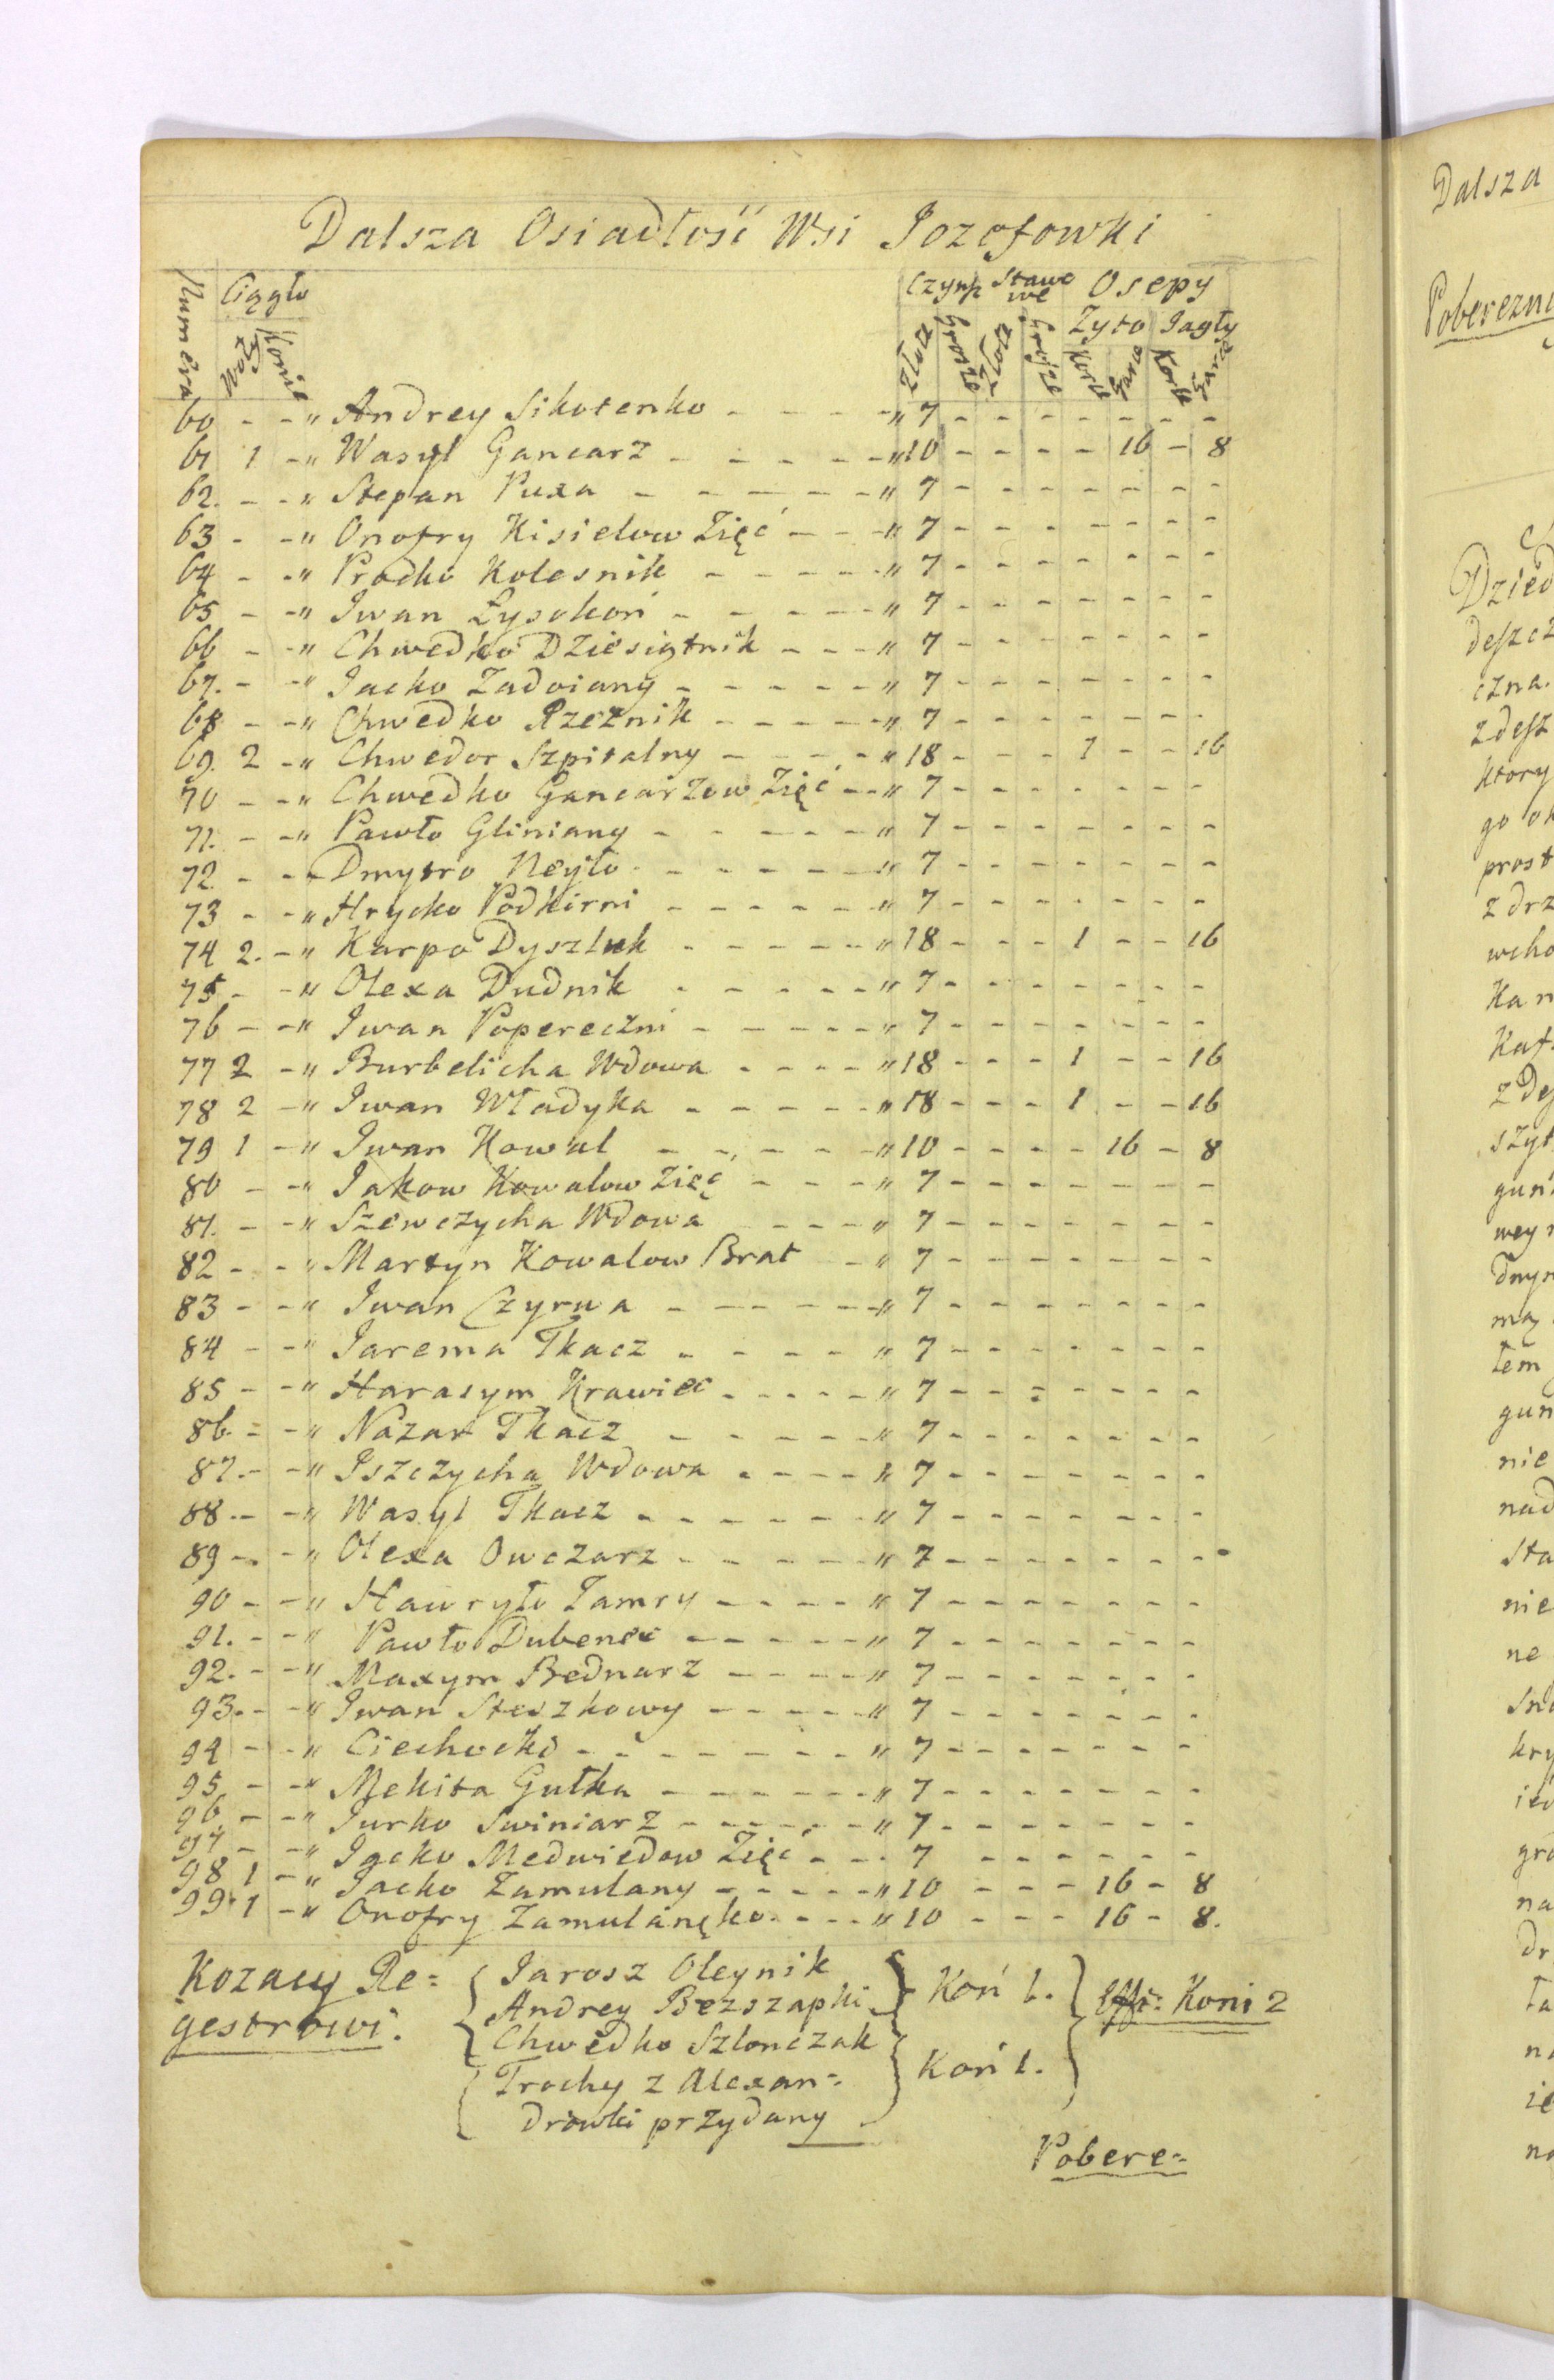 Dalsza Osiadłość Wsi Jozefowki
Numera Cięgło Czynsz Stawowe Osepy
Woły Konie Złote Grosze Złote Grosze Zyto Jagły
Korce Garce Korce Garce
60 - - " Andrey Sikotenko - - - - " 7 - - - - - - -
61 1 - " Wasyl Gancarz - - - - - " 10 - - - - 16 - 8
62. - - " Stepan Puxa - - - - - " 7 - - - - - - -
63 - - " Onofry Kisielow Zięć - - - " 7 - - - - - - -
64 - - " Prodko Kolesnik - - - - - " 7 - - - - - - -
65 - - " Iwan Łysokoń - - - - - " 7 - - - - - - -
66 - - " Chwedko Dziesiątnik - - - " 7 - - - - - - -
67. - - " Jacko Zadoiany - - - - - " 7 - - - - - - -
68 - - " Chwedko Rzeznik - - - - - " 7 - - - - - - -
69. 2 - " Chwedor Szpitalny - - - - " 18 - - - 1 - - 16
70 - - " Chwedko Gancarzow Zięć - - " 7 - - - - - - -
71. - - " Pawło Gliniany - - - - - " 7 - - - - - - -
72. - - - Dmytro Neyło - - - - - - " 7 - - - - - - -
73 - - " Hrycko Podkirni - - - - - - " 7 - - - - - - -
74 2. - " Karpo Dyszluk - - - - - " 18 - - - 1 - - 16
75 - - " Olexa Dudnik - - - - - " 7 - - - - - - -
76 - - " Iwan Popereczni - - - - - " 7 - - - - - - -
77 2 - " Burbelicha Wdowa - - - - " 18 - - - 1 - - 16
78 2 - " Iwan Władyka - - - - - " 18 - - - 1 - - 16
79 1 - " Iwan Kowal - - - - - " 10 - - - - 16 - 8
80 - - " Jakow Kowalow Zięć - - - " 7 - - - - - - -
81. - - " Szewczycha Wdowa - - - - " 7 - - - - - - -
82 - - " Martyn Kowalow Brat - " 7 - - - - - - -
83 - - " Iwan Czyrwa - - - - - - " 7 - - - - - - -
84 - - " Jarema Tkacz - - - - - " 7 - - - - - - -
85 - - " Harasym Krawiec - - - - - " 7 - - - - - - -
86. - - " Nazar Tkacz - - - - - " 7 - - - - - - -
87. - - " Iszczycha Wdowa - - - - " 7 - - - - - - -
88. - - " Wasyl Tkacz - - - - - - " 7 - - - - - - -
89 - - " Olexa Owczarz - - - - - " 7 - - - - - - -
90 - - " Hawryło Zamry - - - - " 7 - - - - - - -
91. - - " Pawło Dubenec - - - - - " 7 - - - - - - -
92. - - " Maxym Bednarz - - - - - " 7 - - - - - - -
93. - - " Iwan Steszkowy - - - - - " 7 - - - - - - -
94 - - " Ciechocki - - - - - - - " 7 - - - - - - -
95 - - " Mekita Gułka - - - - - - " 7 - - - - - - -
96 - - " Jurko Swiniarz - - - - - " 7 - - - - - - -
97 - - " Jacko Medwiedow Zięć - - - 7 - - - - - - -
98 1 - " Jacko Zamulany - - - - - " 10 - - - 16 - 8
99 1 - " Onofry Zamulanęko - - - " 10 - - - 16 - 8.
Kozacy Re=
gestrowi.
Jarosz Oleynik
Andrey Bezszapki
Chwedko Szlonczak
Trochy z Alexan=
drowki przydany
Koń 1.
Koń 1.
Effi: Koni 2
Pobere=
Dalsza
Poberezni
Dzied
deszcz
czna.
z desz
ktory
go ok
prost
z drz
wcho
Kaf.
szyt
dnyn
tem
gun
nie
nad
sta
nie
ne
kry
na